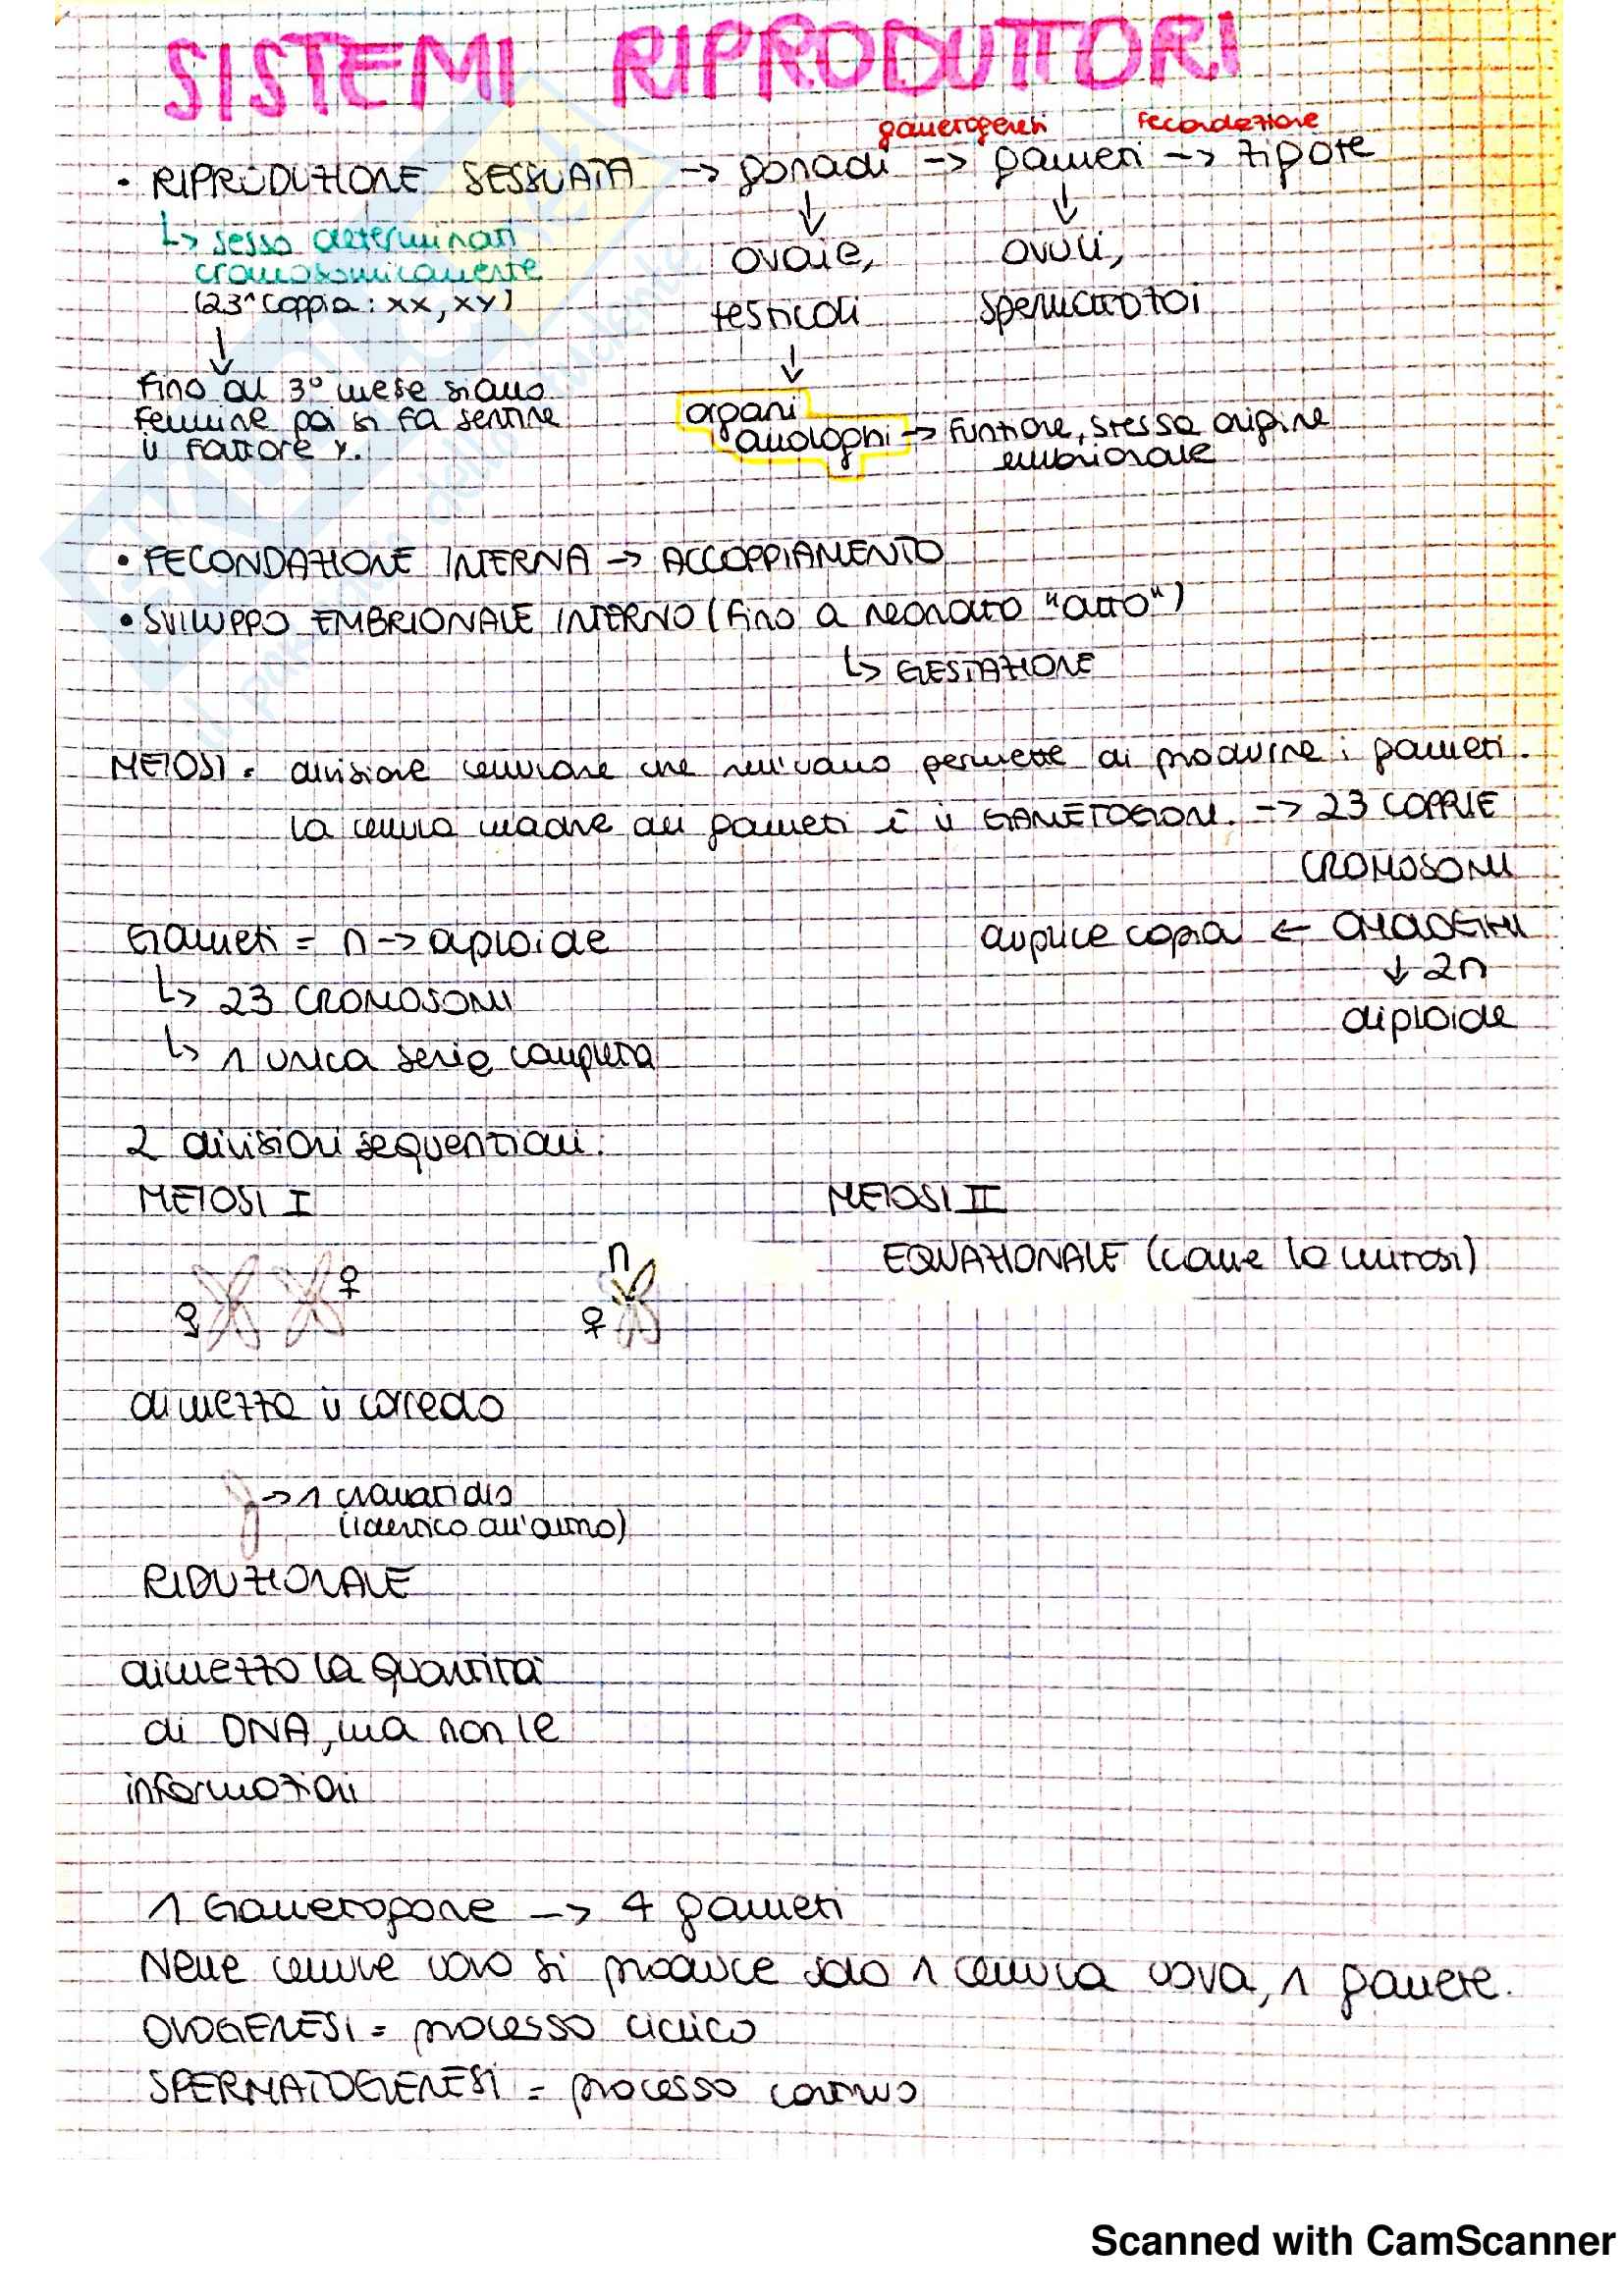 SISTEMI RIPRODUTTORI
gametogenesi fecondazione
• RIPRODUZIONE SESSUATA -> gonadi -> gameti -> zigote
↳ sesso determinati
cromosomicamente
(23^ coppia: XX, XY)
↓ ↓
ovaie, ovuli,
testicoli spermatozoi
↓
↓
fino al 3° mese siamo
femmine poi si fa sentire
il fattore Y.
organi
analoghi -> funzione, stessa origine
embrionale
• FECONDAZIONE INTERNA -> ACCOPPIAMENTO
• SVILUPPO EMBRIONALE INTERNO (fino a neonato "atto")
↳ GESTAZIONE
MEIOSI = divisione cellulare che nell'uomo permette di produrre i gameti.
la cellula madre dei gameti è il GAMETOGONI. -> 23 COPPIE
CROMOSOMI
Gameti = n -> aploide
duplice copia <- OMOLOGHI
↓ 2n
diploide
↳ 23 CROMOSOMI
↳ 1 unica serie completa
2 divisioni sequenziali:
MEIOSI I MEIOSI II
EQUAZIONALE (come la mitosi)
♀ ♀ n ♀
dimezza il corredo
-> 1 cromatidio
(identico all'altro)
RIDUZIONALE
dimezzo la quantità
di DNA, ma non le
informazioni
1 Gametogone -> 4 gameti
Nelle cellule uovo si produce solo 1 cellula uova, 1 gamete.
OVOGENESI = processo ciclico
SPERMATOGENESI = processo continuo
Scanned with CamScanner